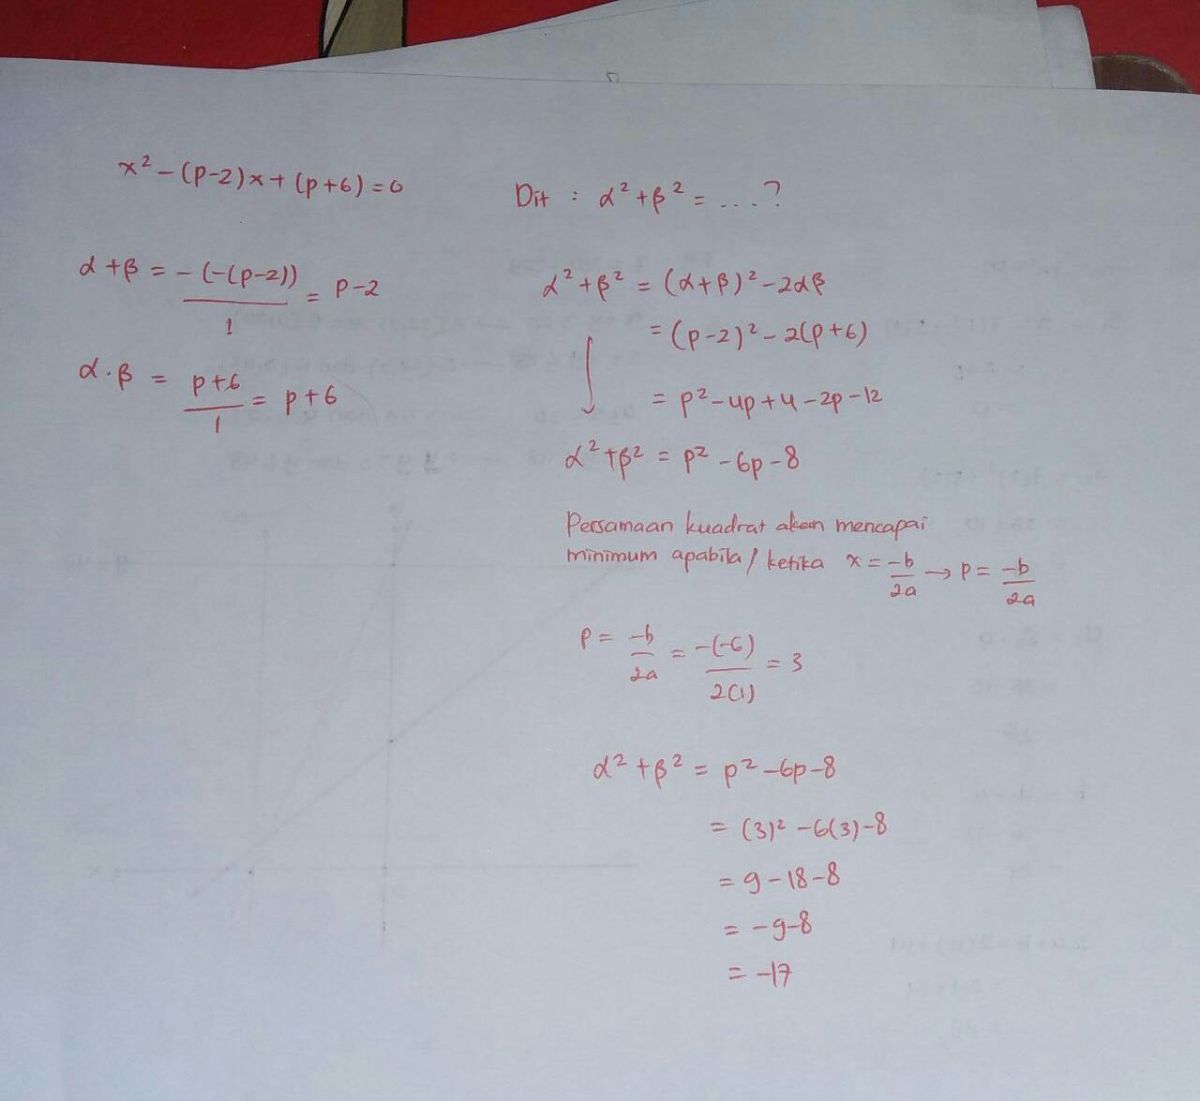 x² - (p-2)x + (p+6) = 0
Dit : α² + β² = ....?
α + β = -(-(p-2)) / 1 = p-2
α . β = p+6 / 1 = p+6
α² + β² = (α+β)² - 2αβ
= (p-2)² - 2(p+6)
= p² - 4p + 4 - 2p - 12
α² + β² = p² - 6p - 8
Persamaan kuadrat akan mencapai
minimum apabila / ketika x = -b / 2a → p = -b / 2a
p = -b / 2a = -(-6) / 2(1) = 3
α² + β² = p² - 6p - 8
= (3)² - 6(3) - 8
= 9 - 18 - 8
= -9 - 8
= -17